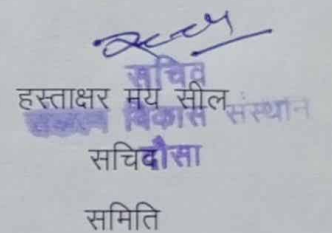 सचिव
हस्ताक्षर मय सील
विकास संस्थान
सचि
दौसा
समिति